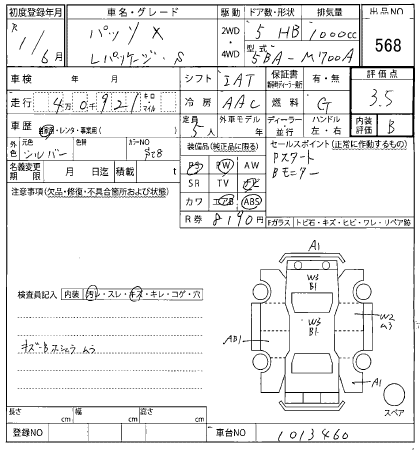 初度登録年月 車名・グレード 駆動 ドア数・形状 排気量 出品NO
R 1/6月 パッソ X 2WD 5 HB 1000cc 568
Lパッケージ・S 4WD 型式 5BA-M700A
車検 年 月 シフト IAT 保証書 有・無 評価点
走行 4万0千921 キロ マイル 冷房 AAC 燃料 G 3.5
車歴 自家用・レンタ・事業用( ) 定員 5人 外車モデル 年 ディーラー 並行 ハンドル 左・右 内装評価 B
外色 元色 シルバー 色替 カラーNO S28 装備品(純正品に限る) セールスポイント(正常に作動するもの)
PS PW AW Pスタート
名義変更期限 月 日迄 積載 t SR TV ナビ Bモニター
注意事項(欠品・修復・不具合箇所および状態) カワ エアB ABS
R券 8190円 Fガラス トビ石・キズ・ヒビ・ワレ・リペア跡
A1
W3
B1
検査員記入 内装 汚レ・スレ・キズ・キレ・コゲ・穴
W2
ム3
W3
B1
AB1
キズ・B ホシュウ ムラ
A1
スペア
長さ cm 幅 cm 高さ cm
登録NO 車台NO 1013460